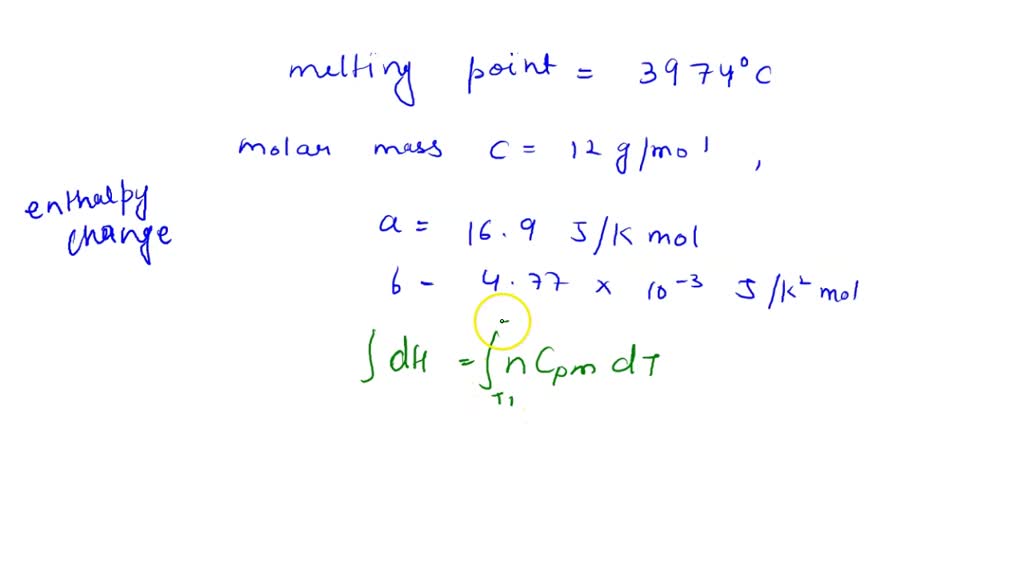 melting point = 3974°C
molar mass C = 12 g/mol ,
enthalpy change
a = 16.9 J/K mol
b - 4.77 × 10⁻³ J/K² mol
∫ dH = ∫ n Cpm dT
T1